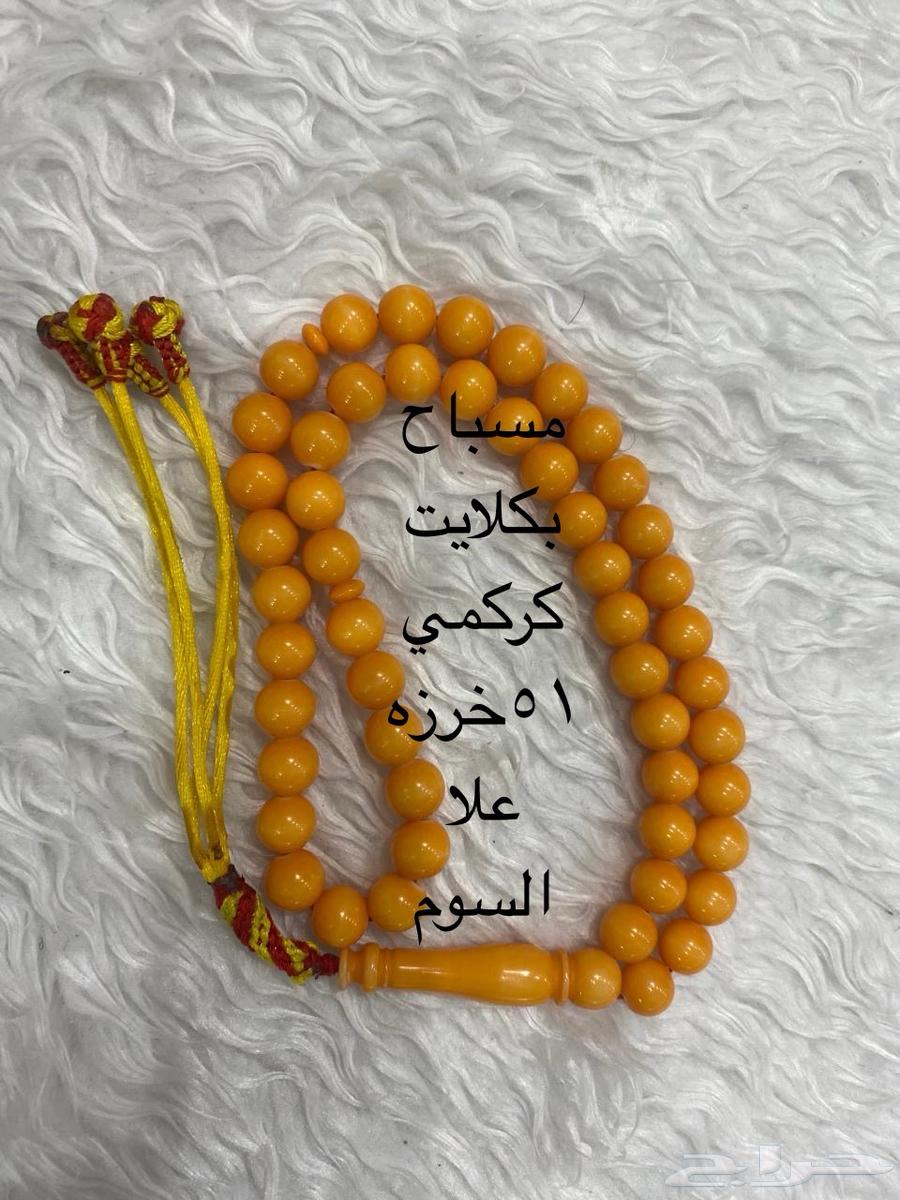 مسباح
بكلايت
كركمي
٥١خرزه
علا
السوم
حراج